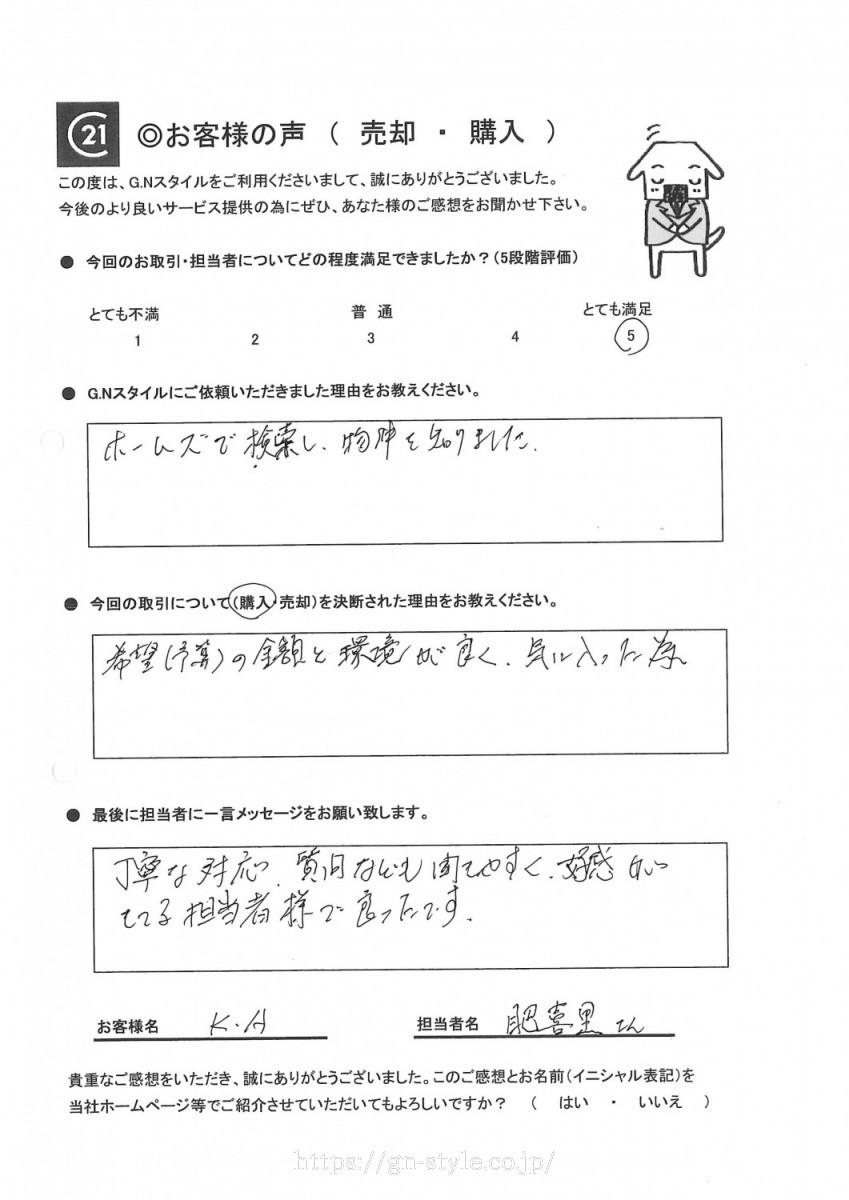 21
◎お客様の声 ( 売却 ・ 購入 )
この度は、G.Nスタイルをご利用くださいまして、誠にありがとうございました。
今後のより良いサービス提供の為にぜひ、あなた様のご感想をお聞かせ下さい。
● 今回のお取引・担当者についてどの程度満足できましたか?(5段階評価)
とても不満 普 通 とても満足
1 2 3 4 5
● G.Nスタイルにご依頼いただきました理由をお教えください。
ホームズで検索し、物件を知りました.
● 今回の取引について(購入・売却)を決断された理由をお教えください。
希望(予算)の金額と環境が良く、気に入った為
● 最後に担当者に一言メッセージをお願い致します。
丁寧な対応、質問なども聞きやすく、好感が
もてる担当者様で良ったです.
お客様名 K・A 担当者名 肥喜里さん
貴重なご感想をいただき、誠にありがとうございました。このご感想とお名前(イニシャル表記)を
当社ホームページ等でご紹介させていただいてもよろしいですか? ( はい ・ いいえ )
https://gn-style.co.jp/